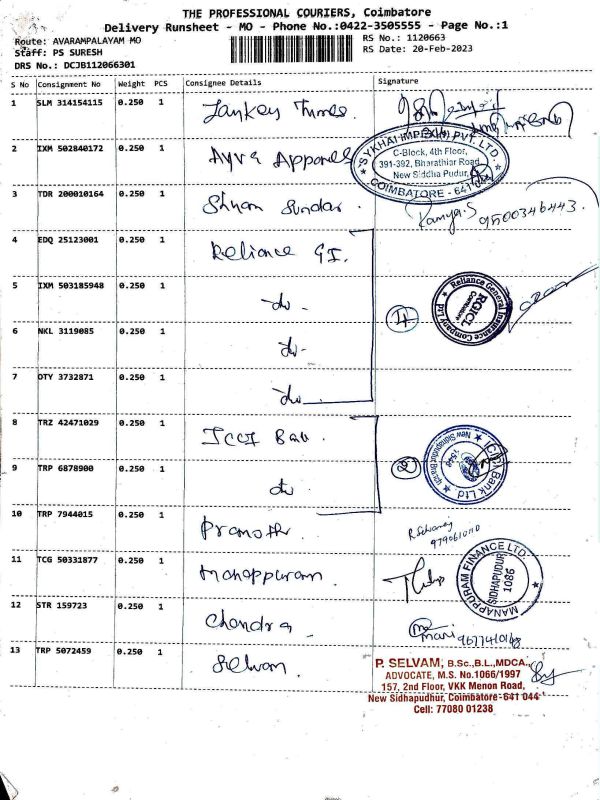 THE PROFESSIONAL COURIERS, Coimbatore
Delivery Runsheet - MO - Phone No.:0422-3505555 - Page No.:1
Route: AVARAMPALAYAM MO
RS No.: 1120663
Staff: PS SURESH
RS Date: 20-Feb-2023
DRS No.: DCJB112066301
S No Consignment No Weight PCS Consignee Details Signature
1 SLM 314154115 0.250 1
2 IXM 502840172 0.250 1
SYKHAI IMPEX (I) PVT. LTD.
C-Block, 4th Floor,
391-392, Bharathiar Road,
New Siddha Pudur,
COIMBATORE - 641
3 TDR 200010164 0.250 1 Shyam Sundar.
Ramya.S 9500346443.
4 EDQ 25123001 0.250 1 Reliance GI.
5 IXM 503185948 0.250 1 do.
4
Reliance General Insurance Company Ltd
RGICL
Coimbatore
6 NKL 3119085 0.250 1 do-
7 OTY 3732871 0.250 1 do.
8 TRZ 42471029 0.250 1
9 TRP 6878900 0.250 1 do.
2
ICICI Bank Ltd.
10 TRP 7944015 0.250 1 Pramoth.
9790610110
11 TCG 50331877 0.250 1 Manappuram.
MANAPPURAM FINANCE LTD.
SIDHAPUDUR
1086
12 STR 159723 0.250 1 Chandra.
Mani
13 TRP 5072459 0.250 1 Selvam.
P. SELVAM, B.Sc.,B.L.,MDCA.,
ADVOCATE, M.S. No.1066/1997
157, 2nd Floor, VKK Menon Road,
New Sidhapudhur, Coimbatore-641 044
Cell: 77080 01238